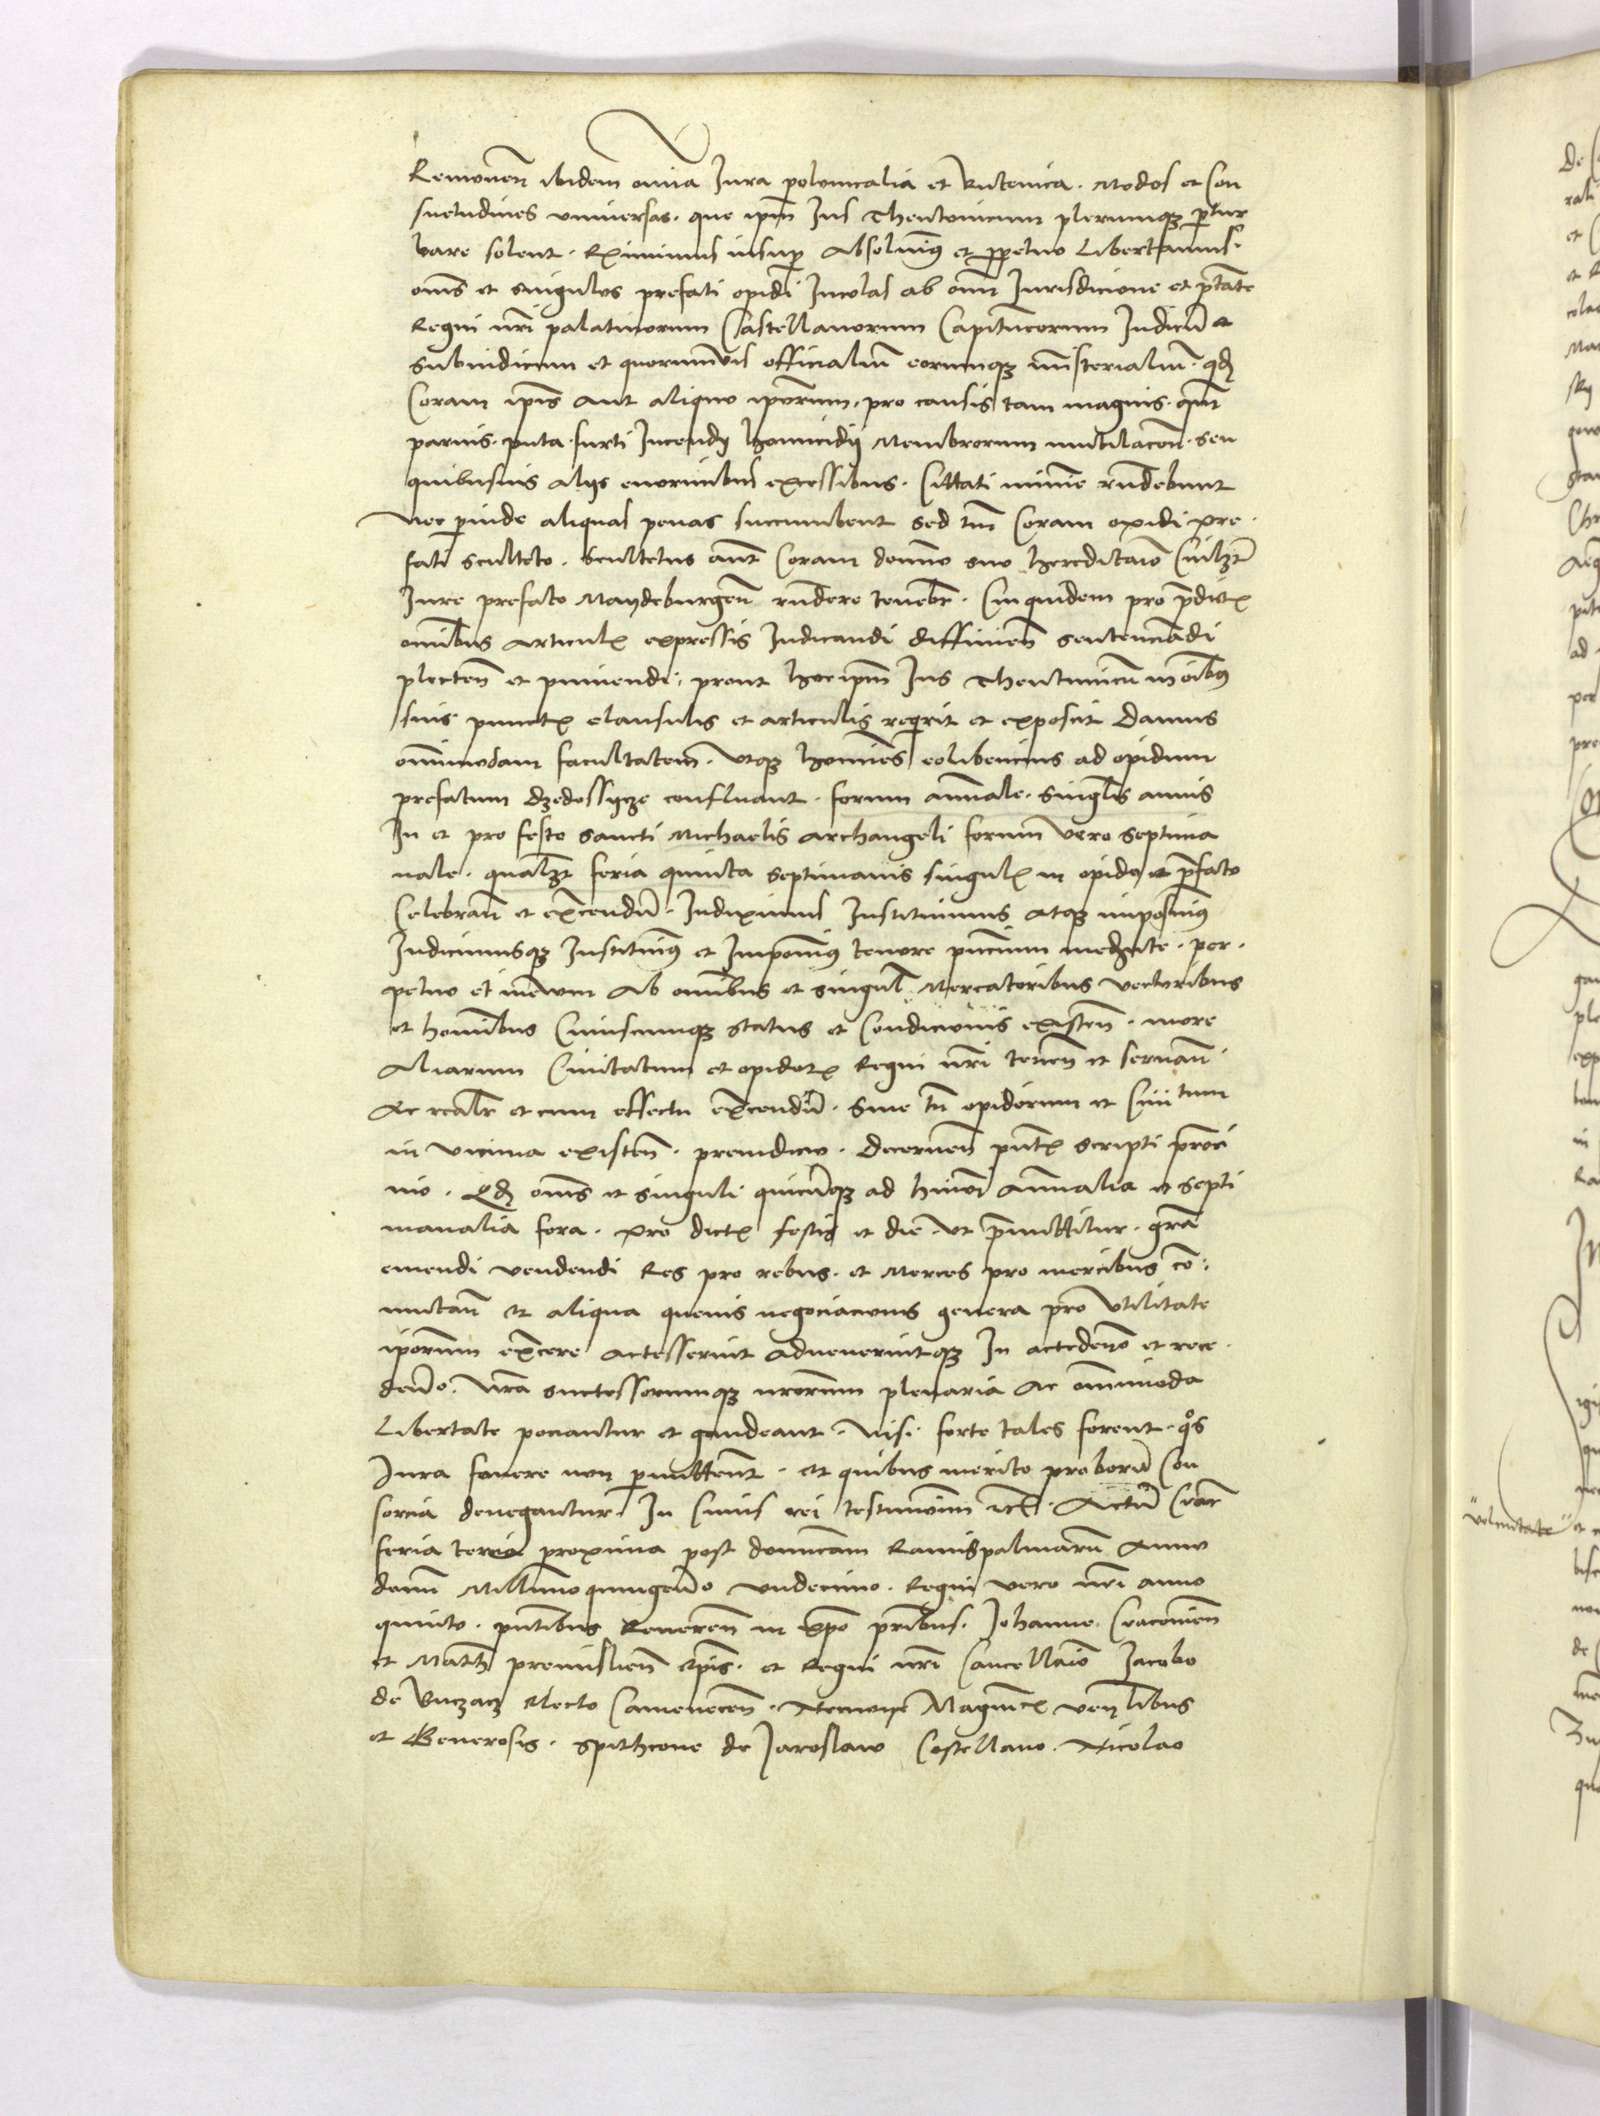 Remouen̄ ibidem omīa Iura polonicalia et Rutenica. Modos et Con
suetudines vniuersas. que ipm̄ Ius Theutonicum plerumqꝫ ꝑtur
bare solent. Eximimus insuꝑ Absoluim9 et ꝑpetuo Libertamus.
om̄s et singulos prefati opidi Incolas ab om̄i Iurisdicione et ptāte
Regni nr̄i palatinorum Castellanorum Capitaneorum Iudicū et
subiudicum et quorumuis officialiū eorumqꝫ misterialiū. qđ
Coram ip̄is aut aliquo ipōrum. pro causis tam magnis. qm̄
paruis. puta. furti Incendij homicidij Membrorum mutilacōn. seu
quibusuis alijs enormibus excessibus. Cittati minīe rn̄debunt
nec ꝑinde aliquas penas succumbent sed tm̄ Coram opidi pre.
fati sculteto. Scultetus aut̄ Coram domino suo hereditaīo Cuilꝫt
Iure prefato Maydeburgeñ. rn̄dere tenebr̄. Cui quidem pro p̄dict
omībus articul expressis Iudicandi diffinien̄ sentenciādi
plecten̄ et puniendi. prout hocipm̄ Ius Theutunicū in oībus
suis. punct clausulis et articulis reqrit et exposcit Damus
omnimodam facultatem. Vtqꝫ homines eo libencius ad opidum
prefatum Dzedossijcze confluant. forum annuale. singulis annis
In et pro festo sancti Michaelis archangeli forum Vero septima
nale. qualꝫt feria quinta septimanis singul in opido et p̄fato
Celebran̄ et ex̄cendū. Induximus Instituimus atqꝫ imposuim9
Inducimusqꝫ Instituim9 et Imponim9 tenore pn̄cium medꝫnte. per.
petuo et in ewum Ab omībus et singul Mercatoribus vectoribus
et hominibus Cuiuscumqꝫ status et Condicionis existen̄. more
Aliarum Ciuitatum et opidor Regni nr̄i teneñ et seruan̄
Ac realr̄ et cum effectu ex̄cendū. Sine tn̄ opidorum et Ciuitum
in vicinia existen̄. preiudicio. Decernen̄ pn̄t scripti p̄roci
nio. Qđ om̄s et singuli quicūqꝫ ad hm̄oi Annualia et septi
manalia fora. pro dict festis et die vt p̄mittitur. grā
emendi vendendi Res pro rebus. et Merces pro mercibus cō.
mutan̄ et aliqua queuis negociacionis genera pro vtilitate
iporum ex̄cere accesserint aduenerintqꝫ In accedendo et rece.
dendo. nrā successorumqꝫ nrorum plenaria ac omnimoda
Libertate pociantur et gaudeant. nisi forte tales forent. q̊s
Iura fouere non ꝑmittent. et quibus merito proborū Con
sorcia denegantur. In Cuius rei testimonium etc. Actū Crac̄
feria tercia proxima post dominicam Ramispalmarū Anno
domī Millīmoquingentō vndecimo. Regni vero nr̄i anno
quinto. pn̄tibus Reueren̄ in xp̄o pribus. Iohanne. Cracouien̄
et Matth premislien̄ ep̄is. et Regni nr̄i Cancellaīo Iacobo
de Buczacz electo Camenecen̄. Magnific ven libus
et Generosis. Spithcone de Iaroslaw Castellano. Nicolao
voluntate